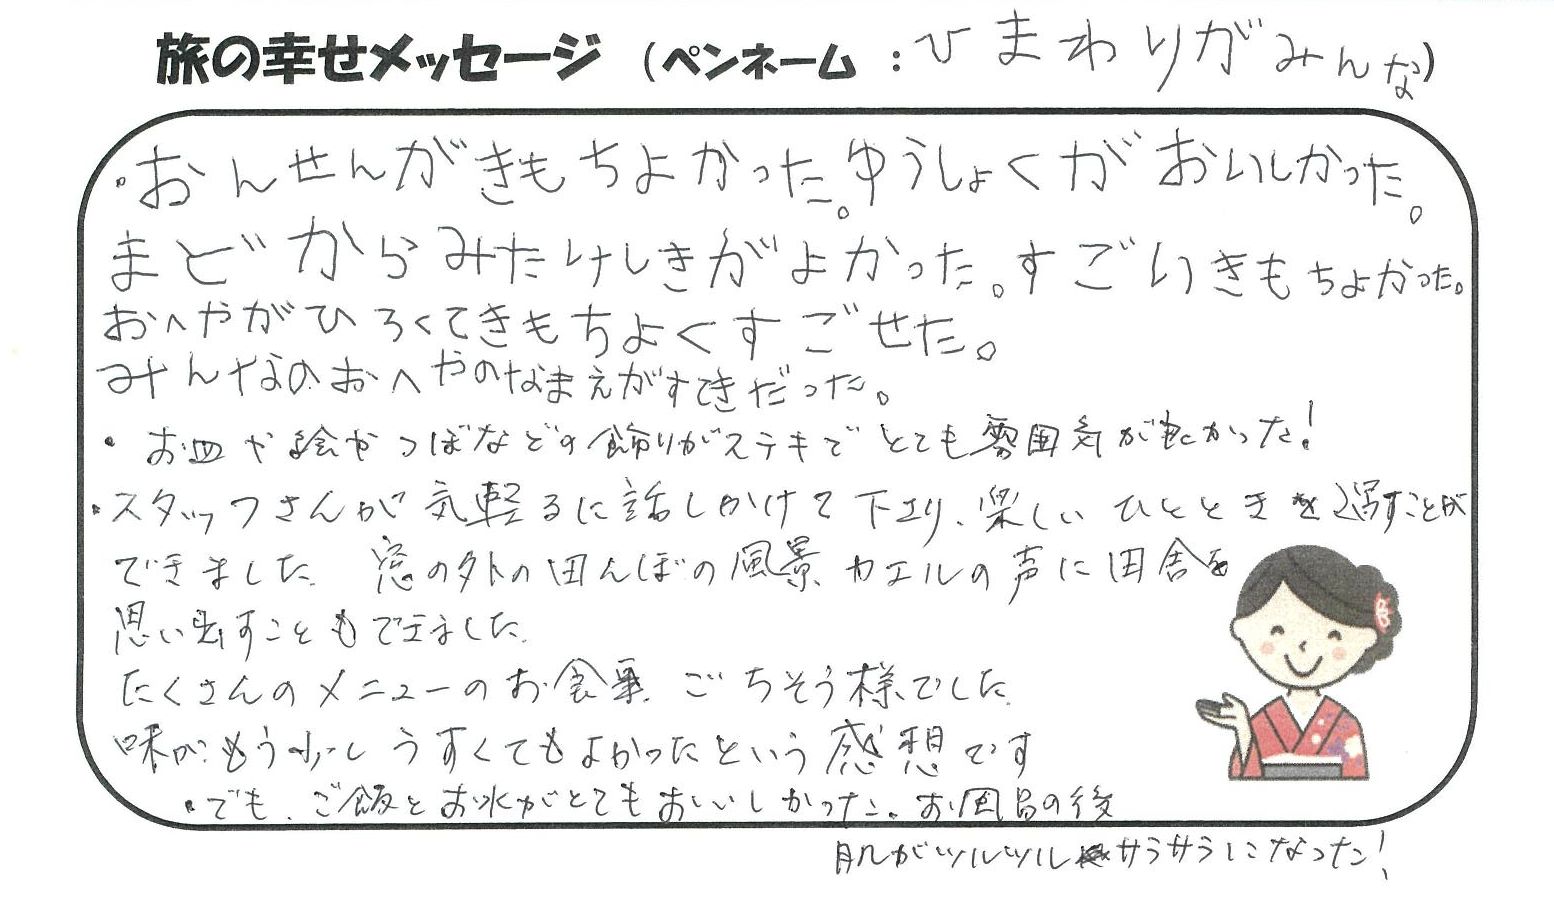 旅の幸せメッセージ (ペンネーム : ひまわりがみんな)
・おんせんがきもちよかった。ゆうしょくがおいしかった。
まどからみたけしきがよかった。すごいきもちよかった。
おへやがひろくてきもちよくすごせた。
みんなのおへやのなまえがすてきだった。
・お皿や絵やつぼなどの飾りがステキでとても雰囲気が良かった!
・スタッフさんが気軽るに話しかけて下さり、楽しいひとときを過すことが
できました。窓の外の田んぼの風景、カエルの声に田舎を
思い出すこともできました。
たくさんのメニューのお食事、ごちそう様でした。
味がもう少しうすくてもよかったという感想です
・でも、ご飯とお水がとてもおいしかった。お風呂の後
肌がツルツルサラサラになった!